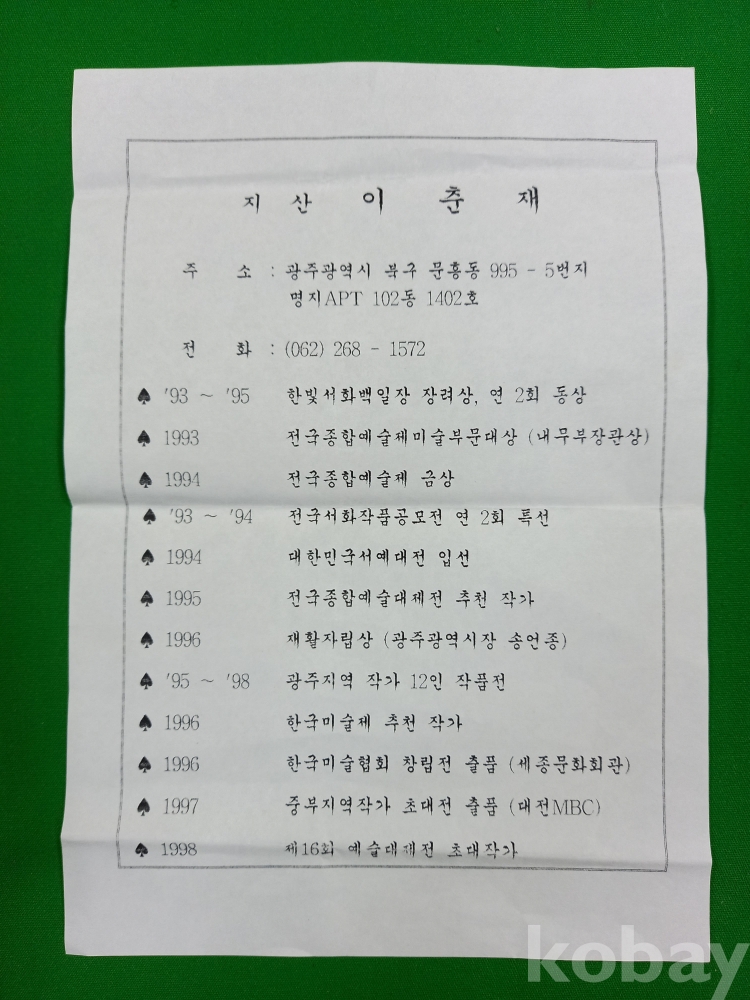 지 산 이 춘 재
주 소 : 광주광역시 북구 문흥동 995 - 5번지
명지APT 102동 1402호
전 화 : (062) 268 - 1572
♠ '93 ~ '95 한빛서화백일장 장려상, 연 2회 동상
♠ 1993 전국종합예술제미술부문대상 (내무부장관상)
♠ 1994 전국종합예술제 금상
♠ '93 ~ '94 전국서화작품공모전 연 2회 특선
♠ 1994 대한민국서예대전 입선
♠ 1995 전국종합예술대제전 추천 작가
♠ 1996 재활자립상 (광주광역시장 송언종)
♠ '95 ~ '98 광주지역 작가 12인 작품전
♠ 1996 한국미술제 추천 작가
♠ 1996 한국미술협회 창립전 출품 (세종문화회관)
♠ 1997 중부지역작가 초대전 출품 (대전MBC)
♠ 1998 제16회 예술대제전 초대작가
kobay